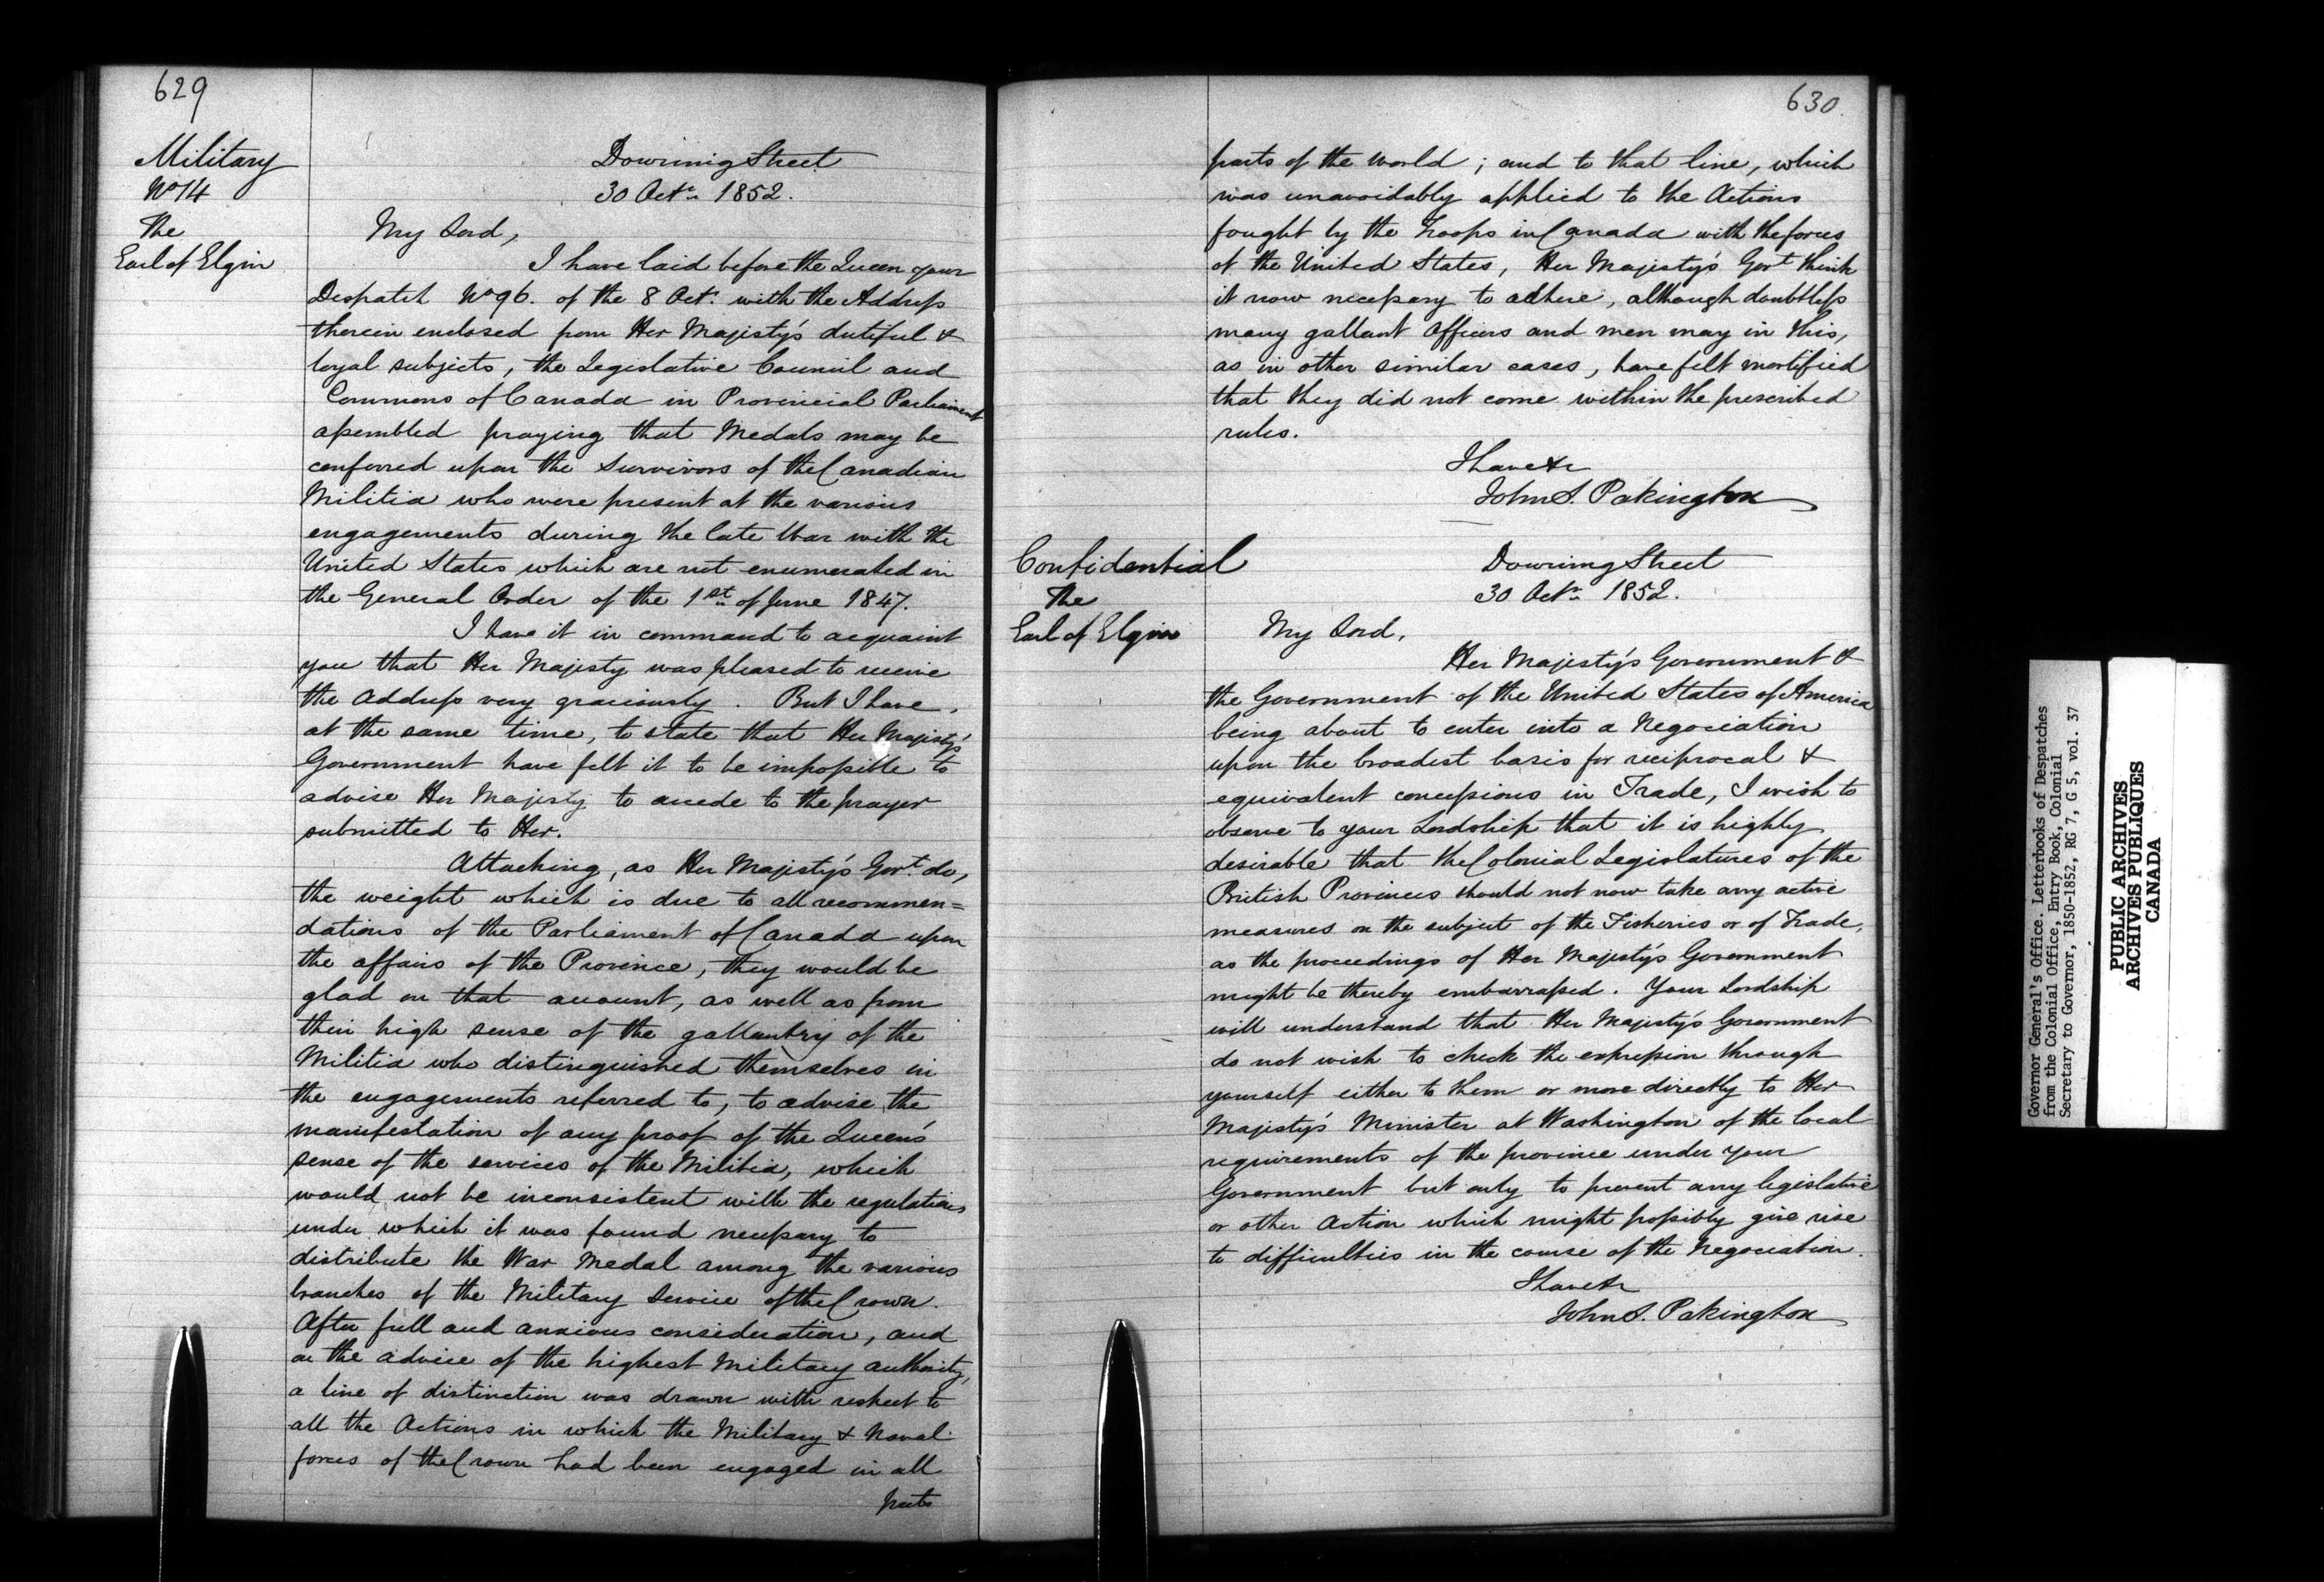 629
Military
No 14
The
Earl of Elgin
Downing Street
30 Octr. 1852.
My Lord,
I have laid before the Queen your
Despatch No 96. of the 8 Oct. with the Address
therein enclosed from Her Majesty's dutiful &
loyal subjects, the Legislative Council and
Commons of Canada in Provincial Parliament
assembled praying that Medals may be
conferred upon the Survivors of the Canadian
Militia who were present at the various
engagements during the late War with the
United States which are not enumerated in
the General Order of the 1st of June 1847.
I have it in command to acquaint
you that Her Majesty was pleased to receive
the Address very graciously. But I have,
at the same time, to state that Her Majesty's
Government have felt it to be impossible to
advise Her Majesty to accede to the prayer
submitted to Her.
Attaching, as Her Majesty's Govt. do,
the weight which is due to all recommen=
dations of the Parliament of Canada upon
the affairs of the Province, they would be
glad on that account, as well as from
their high sense of the gallantry of the
Militia who distinguished themselves in
the engagements referred to, to advise the
manifestation of any proof of the Queen's
sense of the services of the Militia, which
would not be inconsistent with the regulations
under which it was found necessary to
distribute the War Medal among the various
branches of the Military Service of the Crown.
After full and anxious consideration, and
on the advice of the highest Military authority,
a line of distinction was drawn with respect to
all the Actions in which the Military & Naval
forces of the Crown had been engaged in all
parts
630.
parts of the World; and to that line, which
was unavoidably applied to the Actions
fought by the troops in Canada with the forces
of the United States, Her Majesty's Govt think
it now necessary to adhere, although doubtless
many gallant Officers and men may in this,
as in other similar cases, have felt mortified
that they did not come within the prescribed
rules.
I have &c
John S. Pakington
Confidential
The
Earl of Elgin
Downing Street
30 Octr. 1852.
My Lord,
Her Majesty's Government &
the Government of the United States of America
being about to enter into a Negociation
upon the broadest basis for reciprocal &
equivalent concessions in Trade, I wish to
observe to your Lordship that it is highly
desirable that the Colonial Legislatures of the
British Provinces should not now take any active
measures on the subject of the Fisheries or of Trade,
as the proceedings of Her Majesty's Government
might be thereby embarrassed. Your Lordship
will understand that Her Majesty's Government
do not wish to check the expression through
yourself either to them or more directly to Her
Majesty's Minister at Washington of the local
requirements of the province under your
Government but only to prevent any legislative
or other Action which might possibly give rise
to difficulties in the course of the Negociation.
I have &c
John S. Pakington
Governor General's Office. Letterbooks of Despatches
from the Colonial Office, Entry Book, Colonial
Secretary to Governor, 1850-1852, RG 7, G 5, vol. 37
PUBLIC ARCHIVES
ARCHIVES PUBLIQUES
CANADA